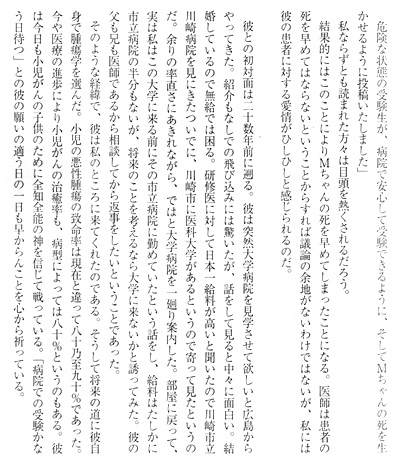 危険な状態の受験生が、病院で安心して受験できるように、そしてＭちゃんの死を生
かせるように投稿いたしました」
私ならずとも読まれた方々は目頭を熱くされるだろう。
結果的にはこのことによりＭちゃんの死を早めてしまったことになる。医師は患者の
死を早めてはならないということからすれば議論の余地がないわけではないが、私には
彼の患者に対する愛情がひしひしと感じられるのだ。
彼との初対面は二十数年前に遡る。彼は突然大学病院を見学させて欲しいと広島から
やってきた。紹介もなしでの飛び込みには驚いたが、話をして見ると中々に面白い。結
婚しているので無給では困る。研修医に対して日本一給料が高いと聞いたので川崎市立
川崎病院を見にきたついでに、川崎市に医科大学があるというので寄って見たというの
だ。余りの率直さにあきれながら、ではと大学病院を一廻り案内した。部屋に戻って、
実は私はこの大学に来る前にその市立病院に勤めていたという話をし、給料はたしかに
市立病院の半分もないが、将来のことを考えるなら大学に来ないかと誘ってみた。彼の
父も兄も医師であるから相談してから返事をしたいということであった。
そのような経緯で、彼は私のところに来てくれたのである。そうして将来の道に彼自
身で腫瘍学を選んだ。小児の悪性腫瘍の致命率は現在と違って八十乃至九十％であった。
今や医療の進歩により小児がんの治癒率も、病型によっては八十％というのもある。彼
は今日も小児がんの子供のために全知全能の神を信じて戦っている。「病院での受験かな
う日待つ」との彼の願いの適う日の一日も早からんことを心から祈っている。